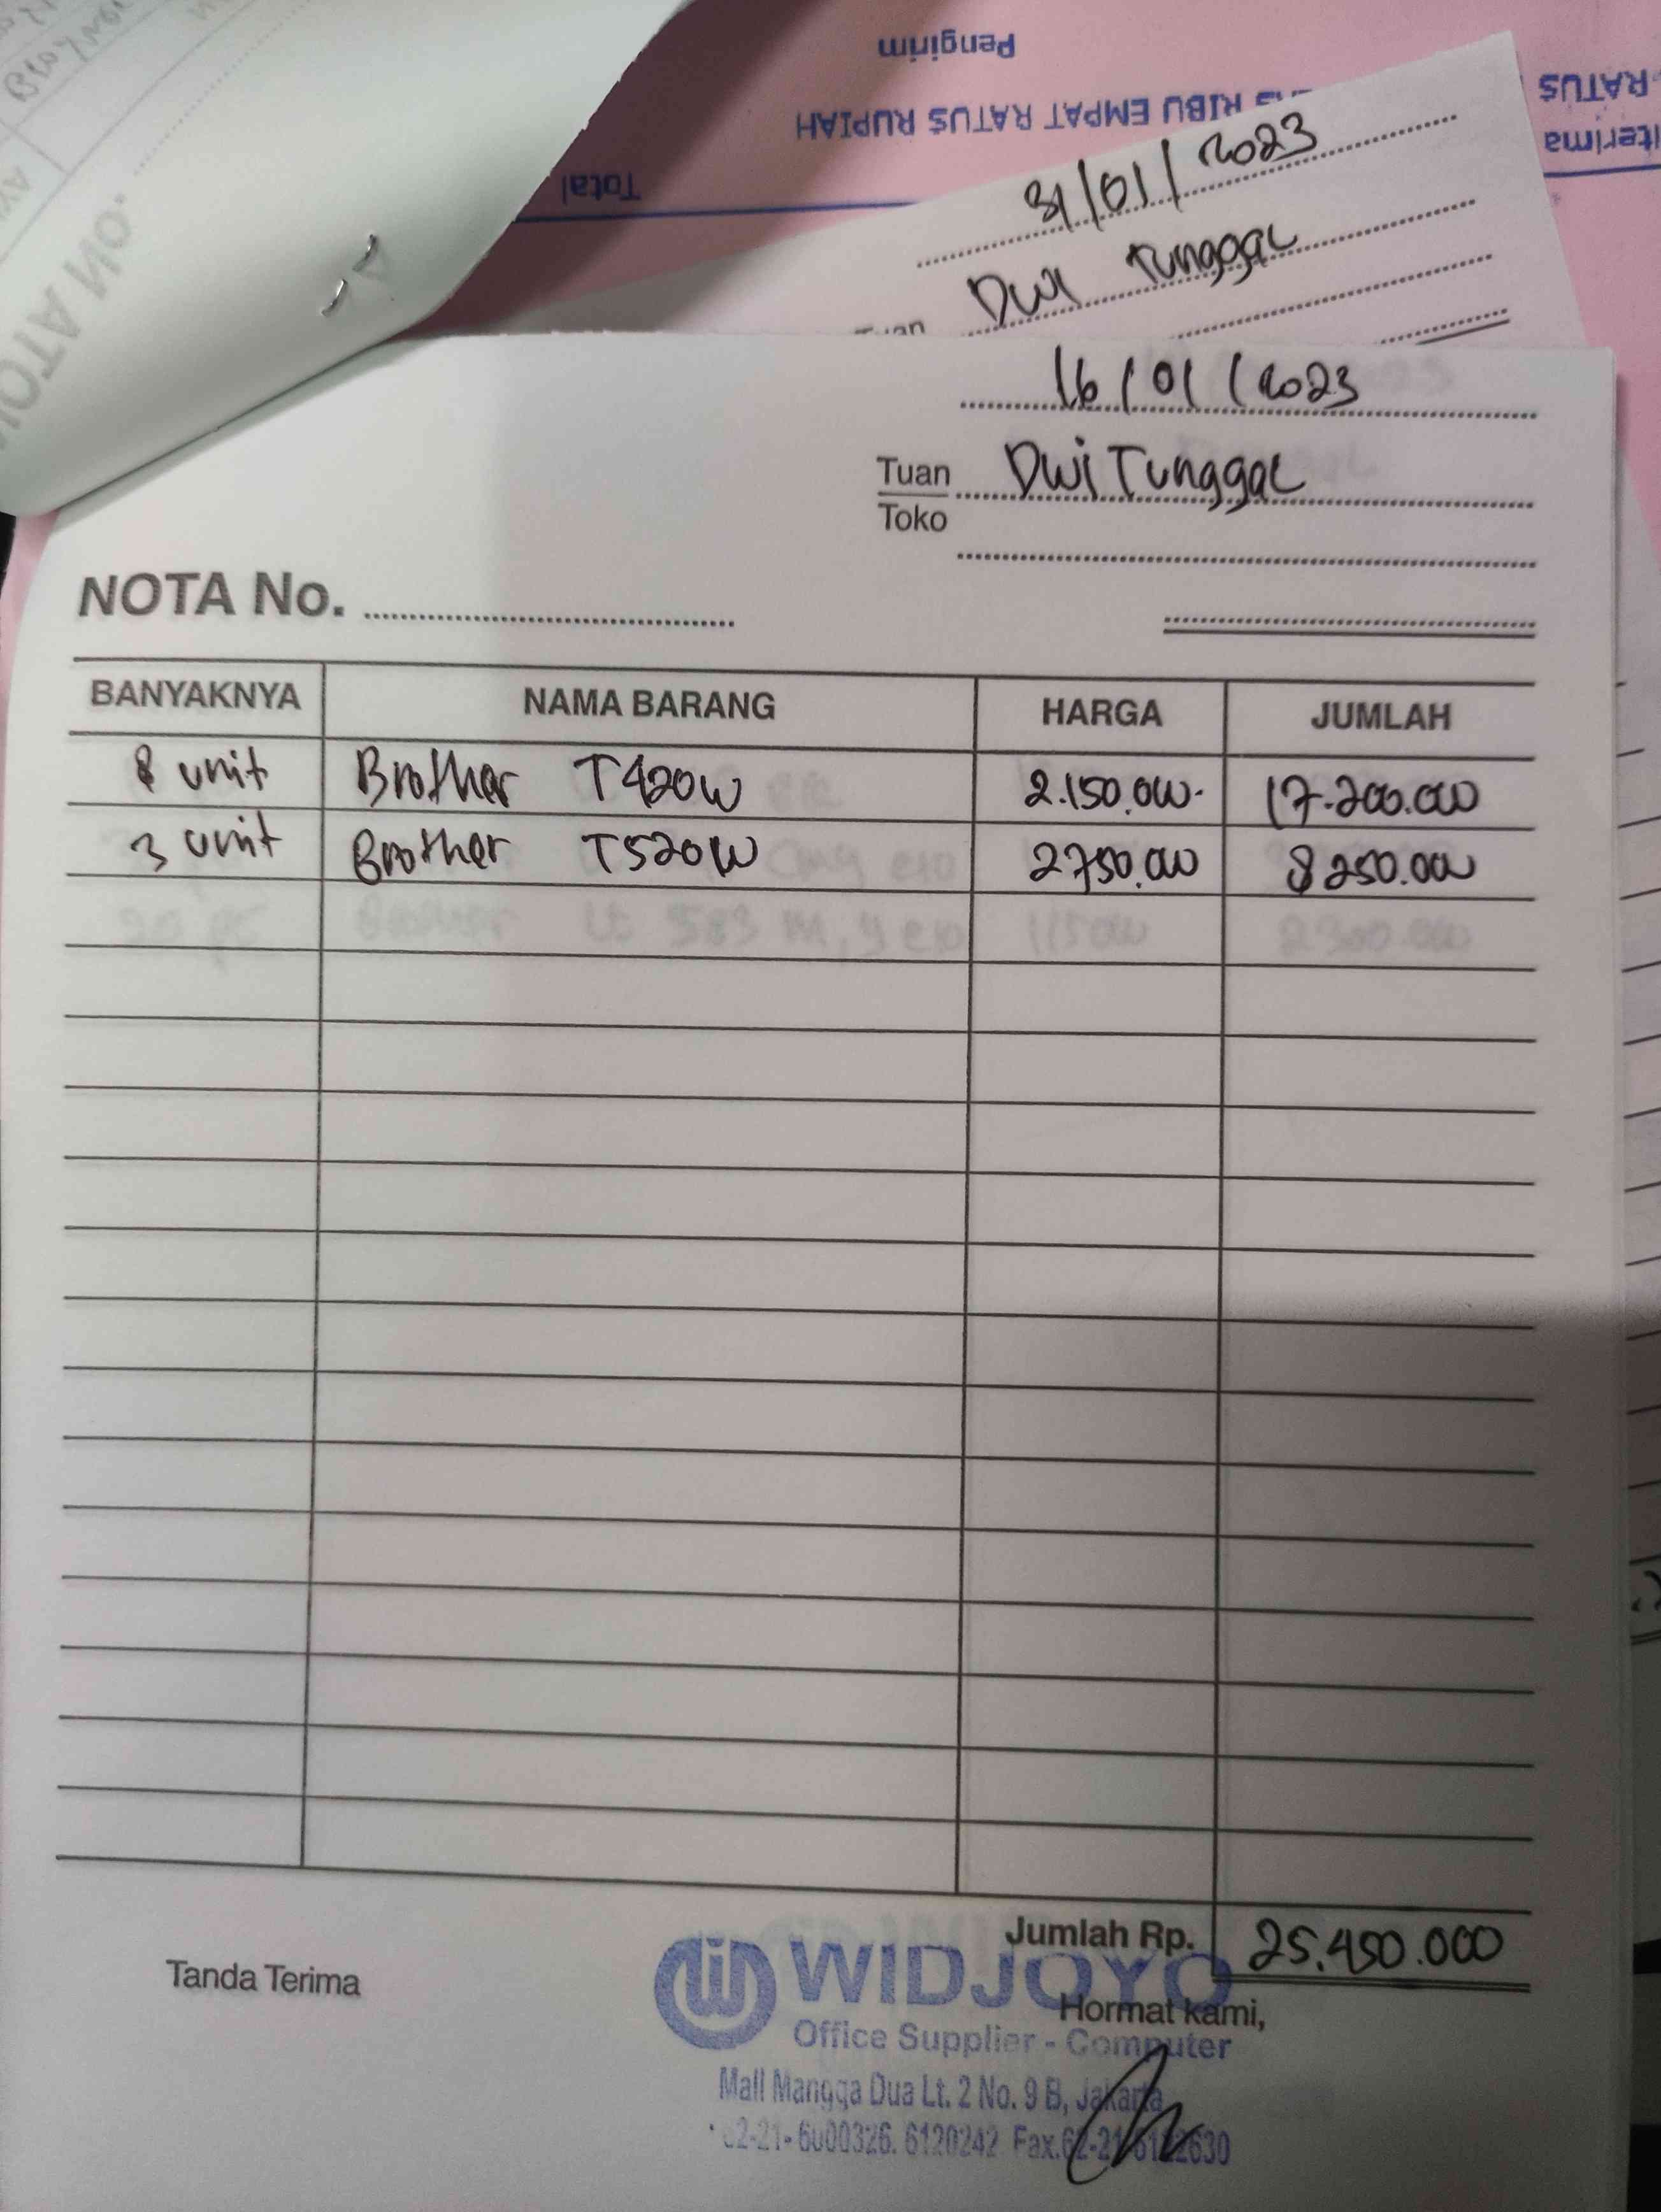 Pengirim
RIBU EMPAT RATUS RUPIAH
RATUS
Total
31/01/2023
Dwi Tunggal
16/01/2023
Tuan Dwi Tunggal
Toko
NOTA No.
BANYAKNYA NAMA BARANG HARGA JUMLAH
8 unit Brother T420W 2.150.000. 17.200.000
3 unit Brother T520W 2750.000 8250.000
Jumlah Rp. 25.450.000
Tanda Terima
WIDJOYO
Hormat kami,
Office Supplier - Computer
Mall Mangga Dua Lt. 2 No. 9 B, Jakarta
62-21-6000326. 6120242 Fax.62-21-6122630